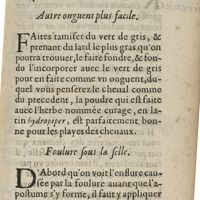 Autre onguent plus facile.
FAites tamiser du vert de gris, &
prenant du lard le plus gras qu'on
pourra trouuer, le faite fondre, & fon-
du l'incorporer auec le vert de gris
pour en faire comme vn onguent, du-
quel vous penserez le cheual comme
du precedent, la poudre qui est faite
auec l'herbe nommée curage, en la-
tin hydropiper, est parfaitement bon-
ne pour les playes des cheuaux.
Foulure sous la selle.
D'Abord qu'on voit l'enflure cau-
sée par la foulure auant que l'a-
postume s'y forme, il faut y appliquer